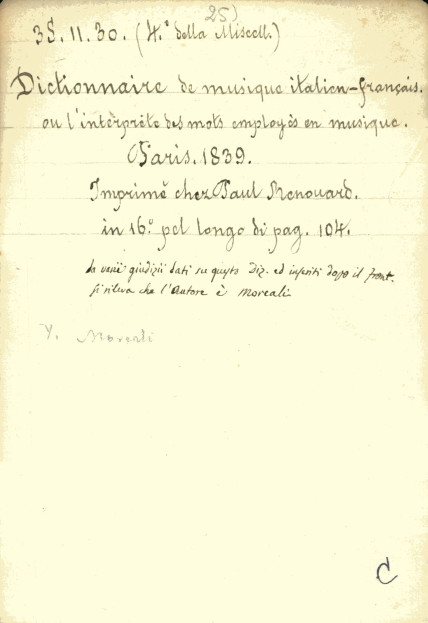 25)
35.11.30. (4.º della Miscell.)
Dictionnaire de musique italien-français.
ou l'interprète des mots employés en musique.
Paris. 1839.
Imprimé chez Paul Renouard.
in 16.º pel longo di pag. 104.
da varii giudizii dati su questo Diz. ed inseriti dopo il front.
si rileva che l'Autore è Moreali
V. Moreali
C